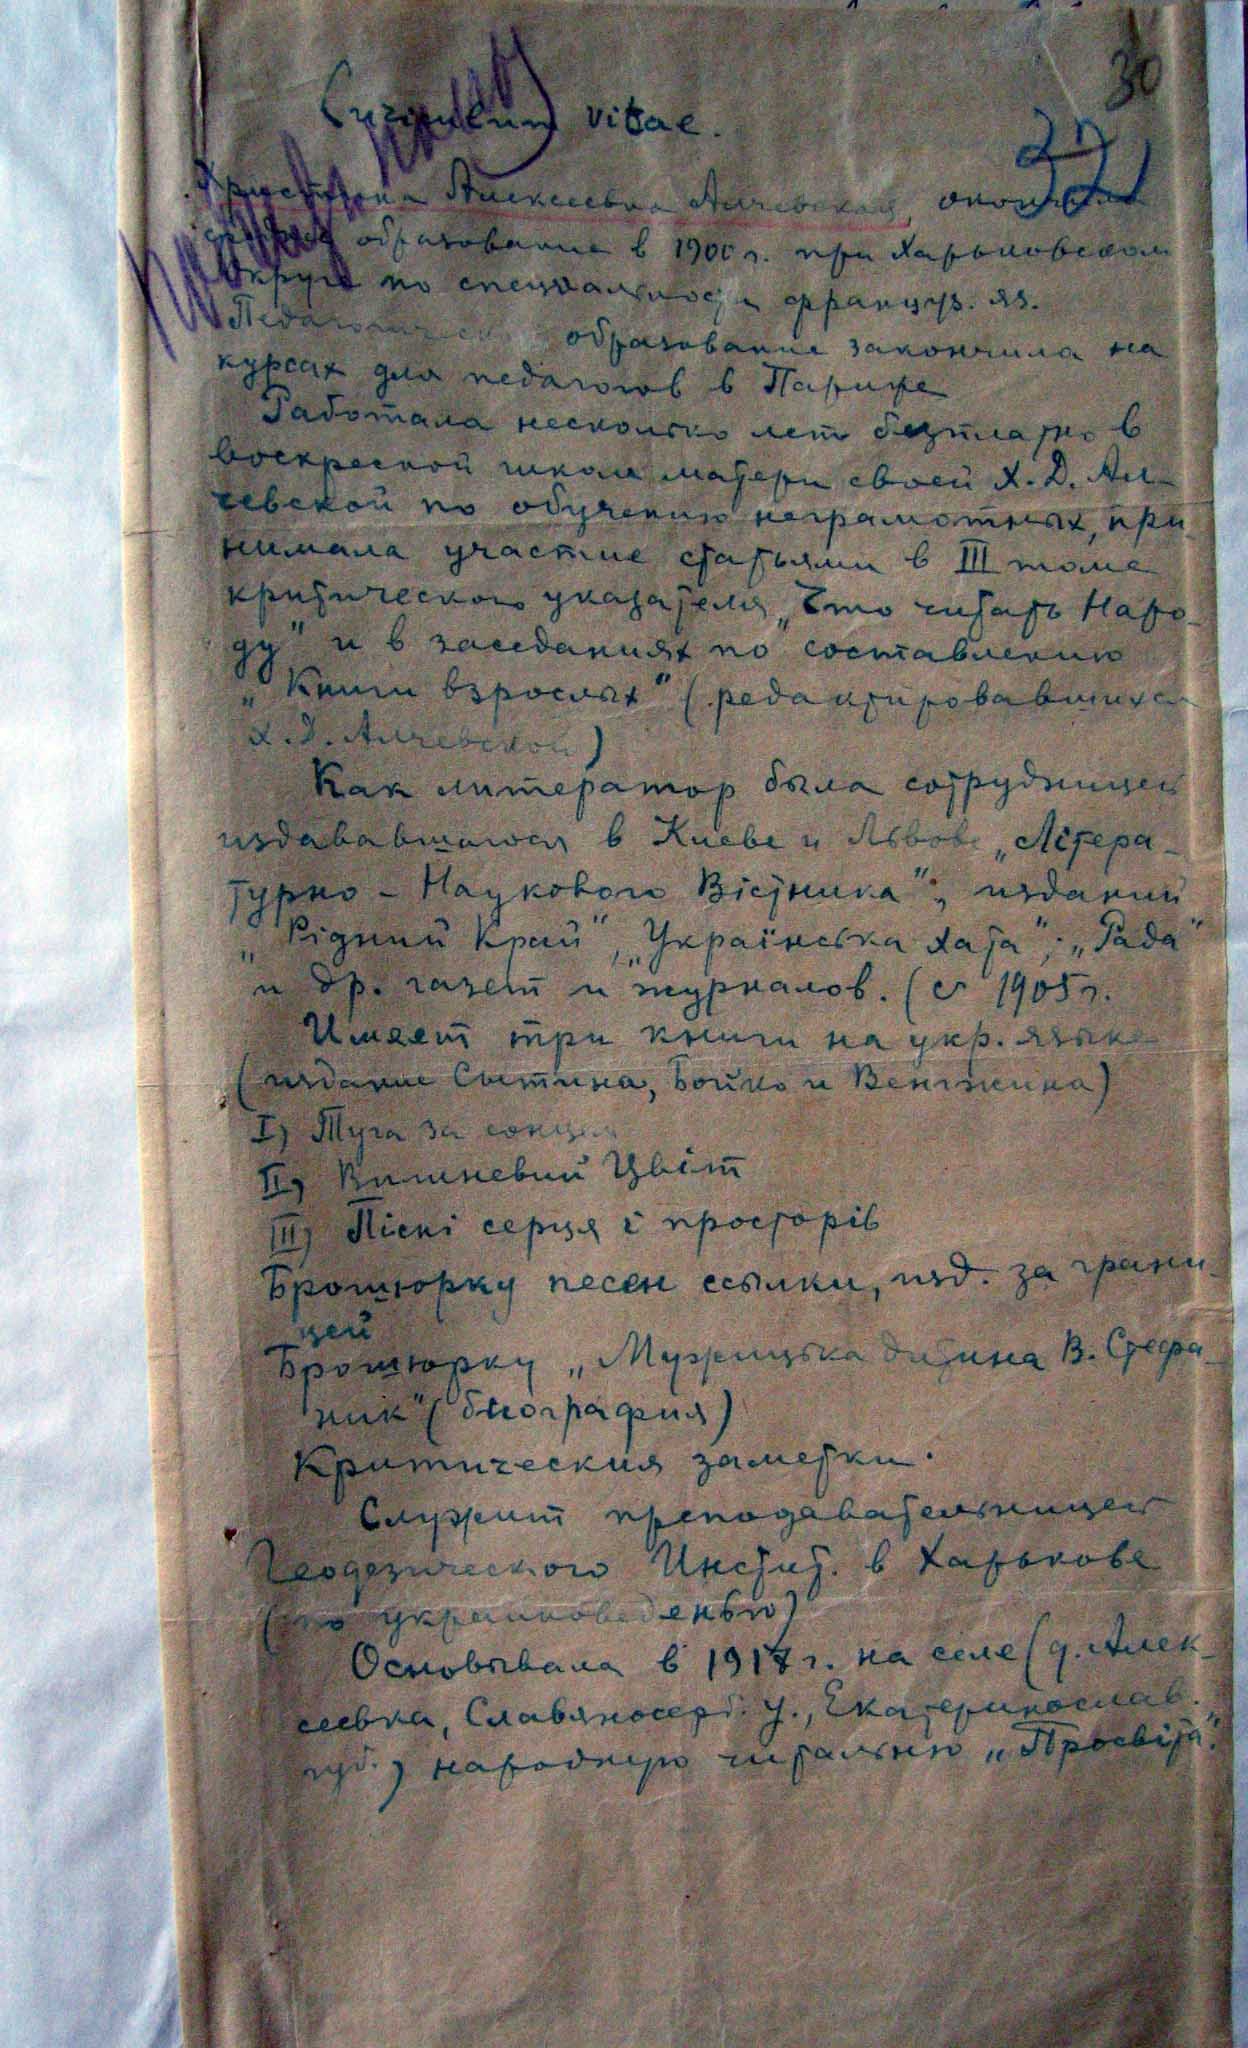 30
32
Curiculum vitae.
Христина Алексеевна Алчевская, окончила
образование в 1900 г. при Харьковском
Округе по специальности француз. яз.
Педагогическое образование закончила на
курсах для педагогов в Париже
Работала несколько лет безплатно в
воскресной школе матери своей Х. Д. Ал-
чевской по обучению неграмотных, при-
нимала участие статьями в III томе
критического указателя „Что читать Наро-
ду" и в заседаниях по составлению
„Книги взрослых" (редактировавшихся
Х. Д. Алчевской)
Как литератор была сотрудницей
издававшагося в Киеве и Львове „Лiтера-
турно-Наукового Вiстника"; изданий
„Рiдний Край", „Українська Хата"; „Рада"
и др. газет и журналов. (с 1905 г.
Имеет три книги на укр. языке
(издание Сытина, Бойко и )
I) Туга за сонцем
II) Вишневий Цвiт
III) Пiснi серця i просторiв
Брошюрку песен ссылки, изд. за грани-
цей
Брошюрку „Мужицька дитина В. Стефа-
ник" (биография)
Критическия заметки.
Служит преподавательницей
Геодезического Инстит. в Харькове
(по украиноведенью)
Основывала в 1917 г. на селе (д. Алек-
сеевка, Славяносерб. у., Екатеринослав.
губ.) народную читальню „Просвiта".